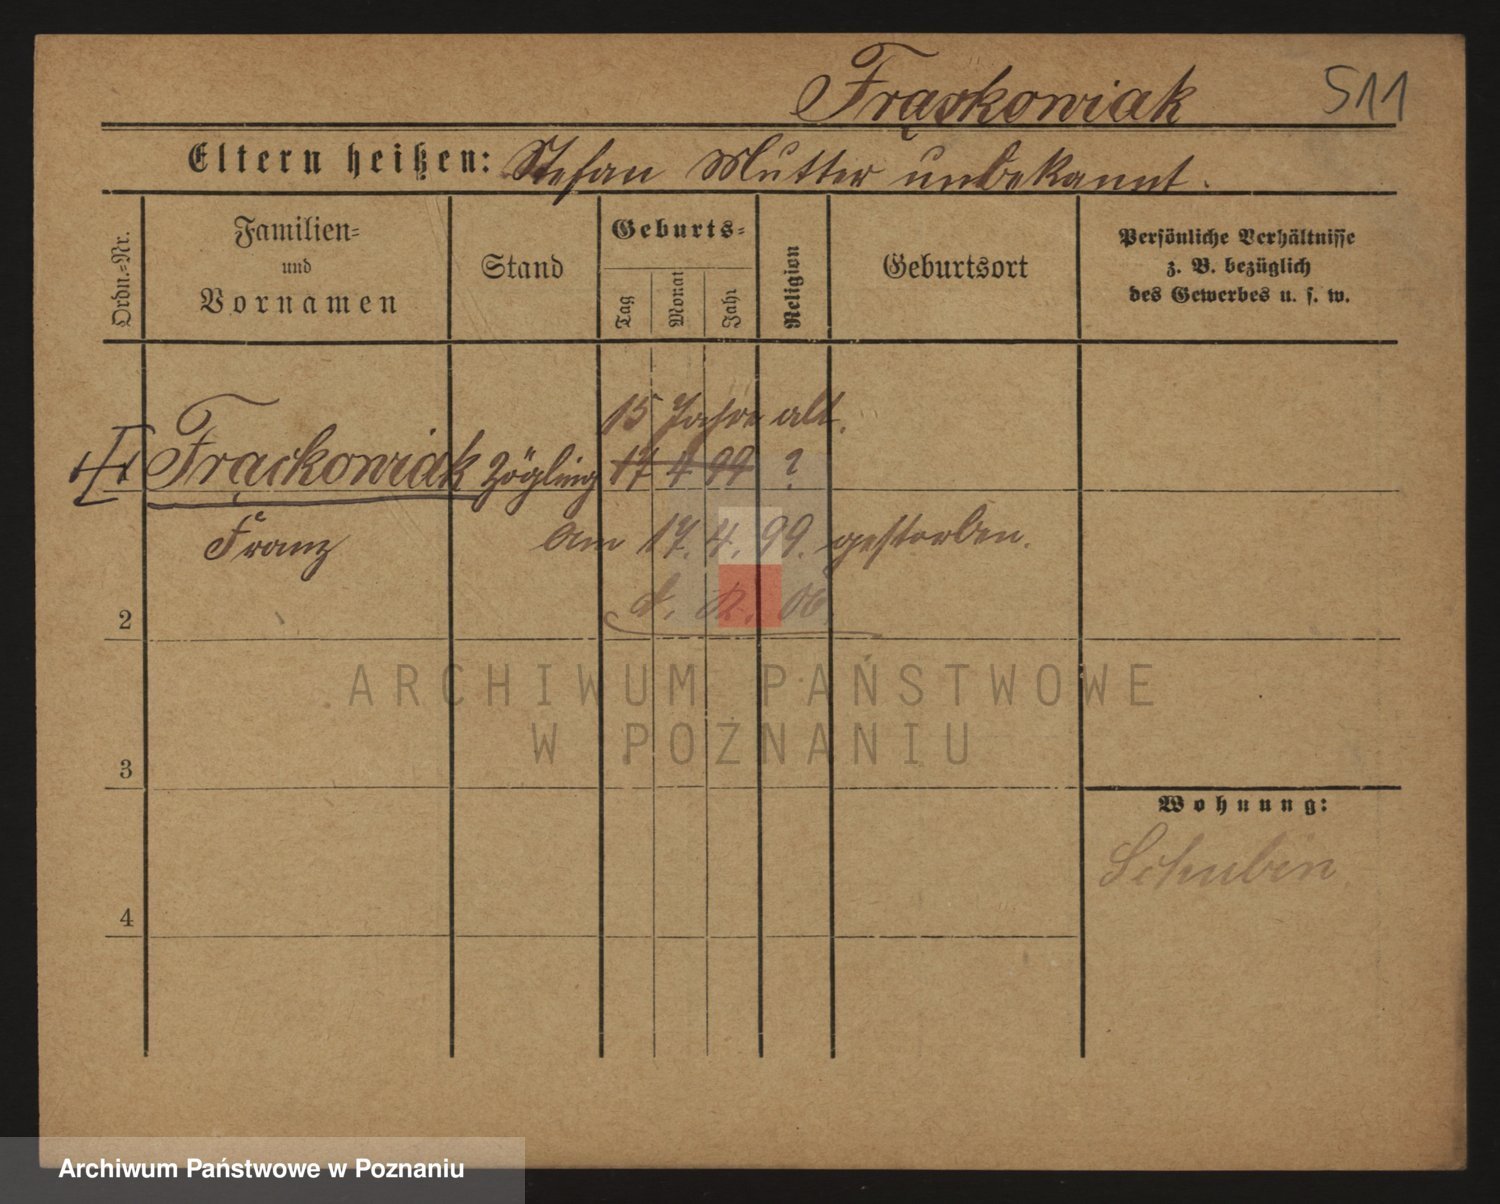 Frąckowiak 511
Eltern heißen: Stefan Mutter unbekannt.
Ordn.=Nr.
Familien=
und
Vornamen
Stand
Geburts=
Tag
Monat
Jahr
Religion
Geburtsort
Persönliche Verhältnisse
z. B. bezüglich
des Gewerbes u. s. w.
15 Jahre alt.
Frąckowiak Zögling 17 4 99 ?
Franz am 17. 4. 99. gestorben.
2
ARCHIWUM PAŃSTWOWE
W POZNANIU
3
Wohnung:
Schubin
4
Archiwum Państwowe w Poznaniu